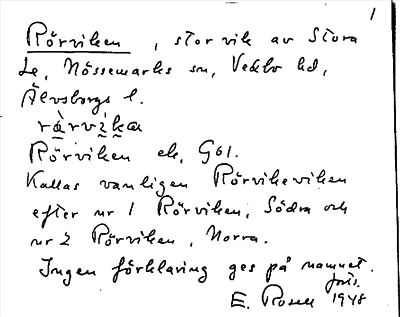 1
Rörviken, stor vik av Stora
Le, Nössemarks sn, Vedbo hd,
Älvsborgs l.
Rörviken ek, G61.
Kallas vanligen Rörvikeviken
efter nr 1 Rörviken, Södra och
nr 2 Rörviken, Norra.
Ingen förklaring ges på namnet.
E. Rosell 1948